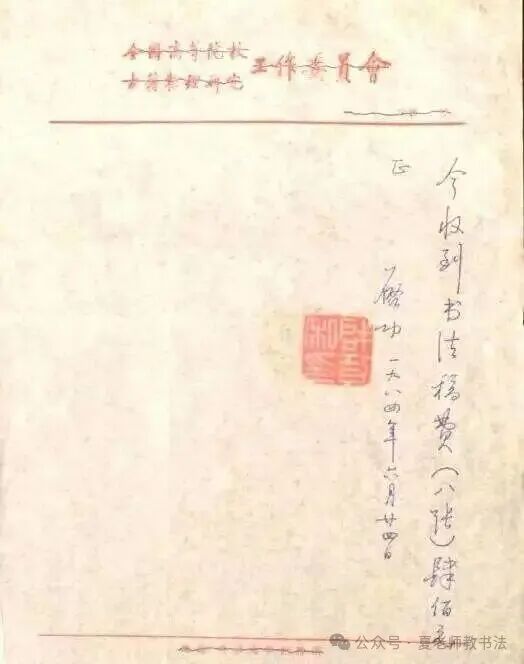 全国高等院校
古籍整理研究
工作委員會
今收到书法稿费（八张）肆佰元
正
启功 一九八四年六月廿四日
公众号·夏老师教书法